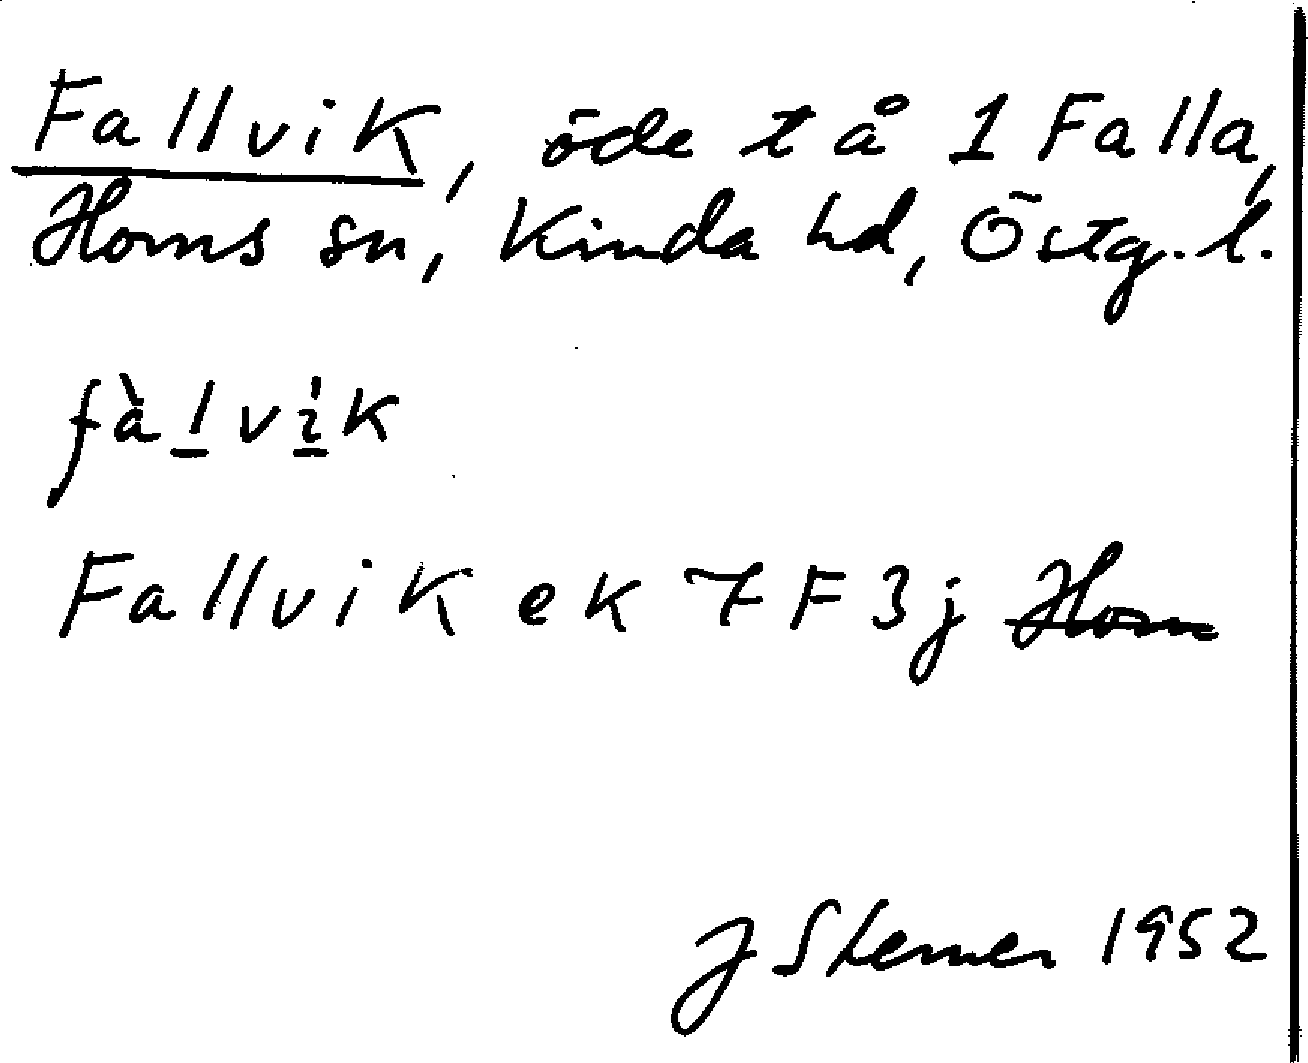 Fallvik, öde t å 1 Falla,
Horns sn, Kinda hd, Östg. l.
fàlvik
Fallvik ek 7F3j Horn
J Sterner 1952